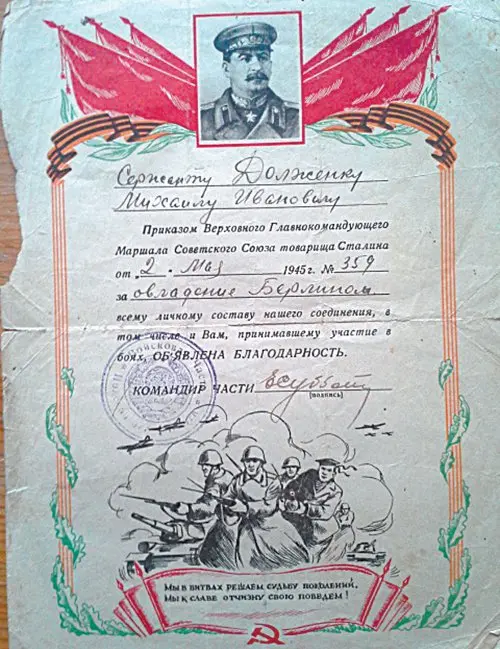 Сержанту Долженку
Михаилу Ивановичу
Приказом Верховного Главнокомандующего
Маршала Советского Союза товарища Сталина
от „2“ Мая 1945 г. № 359
за овладение Берлином
всему личному составу нашего соединения, в
том числе и Вам, принимавшему участие в
боях, ОБ'ЯВЛЕНА БЛАГОДАРНОСТЬ.
КОМАНДИР ЧАСТИ
(подпись)
МЫ В БИТВАХ РЕШАЕМ СУДЬБУ ПОКОЛЕНИЙ,
МЫ К СЛАВЕ ОТЧИЗНУ СВОЮ ПОВЕДЕМ!